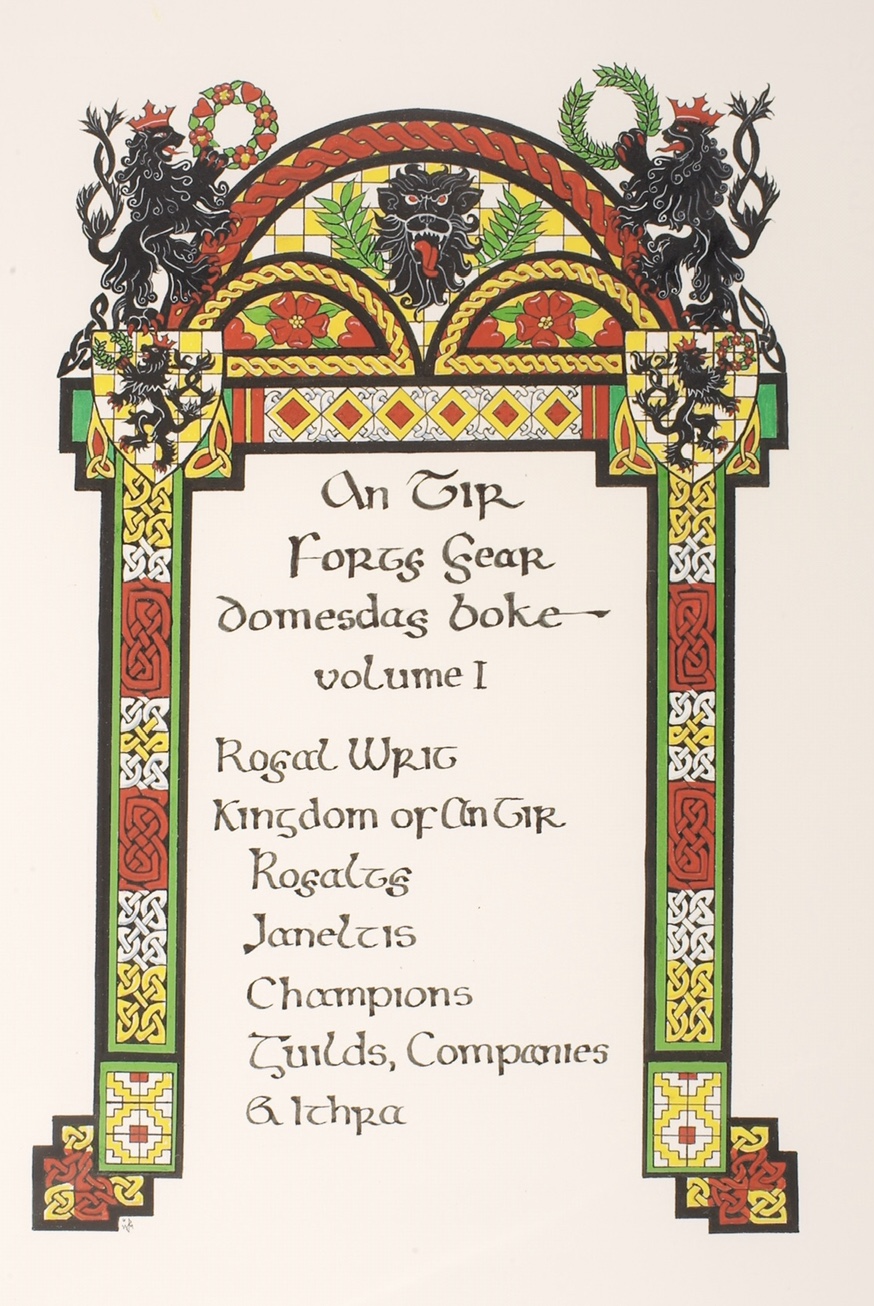 An Tir
Forty Year
Domesday Boke
Volume I
Royal Writ
Kingdom of An Tir
Royalty
Janeltis
Champions
Guilds, Companies
& Ithra